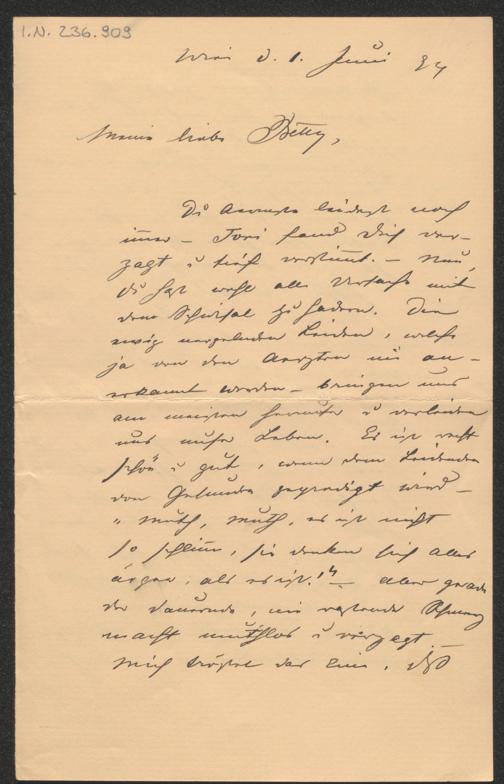 I.N. 236.909
Wien d. 1. Juni 84
Meine liebe Betty,
Du Aermste leidest noch
immer – Tori fand Dich ver-
zagt u tief verstimt. – Nun,
du hast wohl alle Ursache mit
dem Schicksal zu hadern. Die
ewig nergelnden Leiden, welche
ja von den Aerzten nie an-
erkannt werden – bringen uns
am meisten herunter u verleiden
uns unser Leben. Es ist recht
schön u gut, wenn dem Leidenden
von Gesunden gepredigt wird –
"Muth, Muth, es ist nicht
so schlimm, sie denken sich alles
ärger, als es ist!" – aber gerade
der dauernde, nie rastende Schmerz
macht muthlos u verzagt.
Mich tröstet das Eine, daß